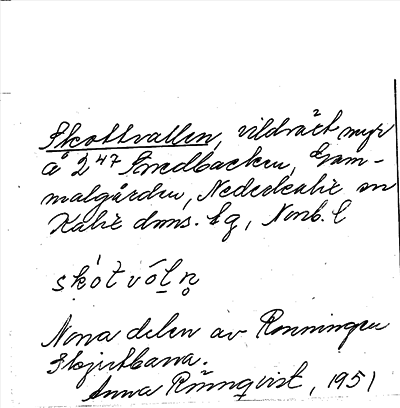 Skottvallen, vildvält myr
å 2⁴⁷ Smedbacken, Gam-
malgården, Nederkalix sn
Kalix dmns. hg, Norrb. l
skótvó̱ln̥
Norra delen av Rönningen
Skjutbana.
Anna Rönnqvist, 1951